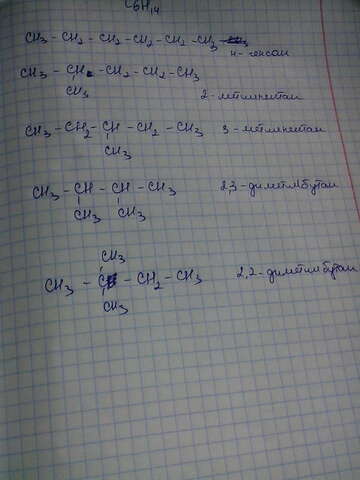 C6H14
CH3 - CH2 - CH2 - CH2 - CH2 - CH3
н-гексан
CH3 - CH - CH2 - CH2 - CH3
CH3
2-метилпентан
CH3 - CH2 - CH - CH2 - CH3
CH3
3-метилпентан
CH3 - CH - CH - CH3
CH3 CH3
2,3-диметилбутан
CH3
CH3 - C - CH2 - CH3
CH3
2,2-диметилбутан